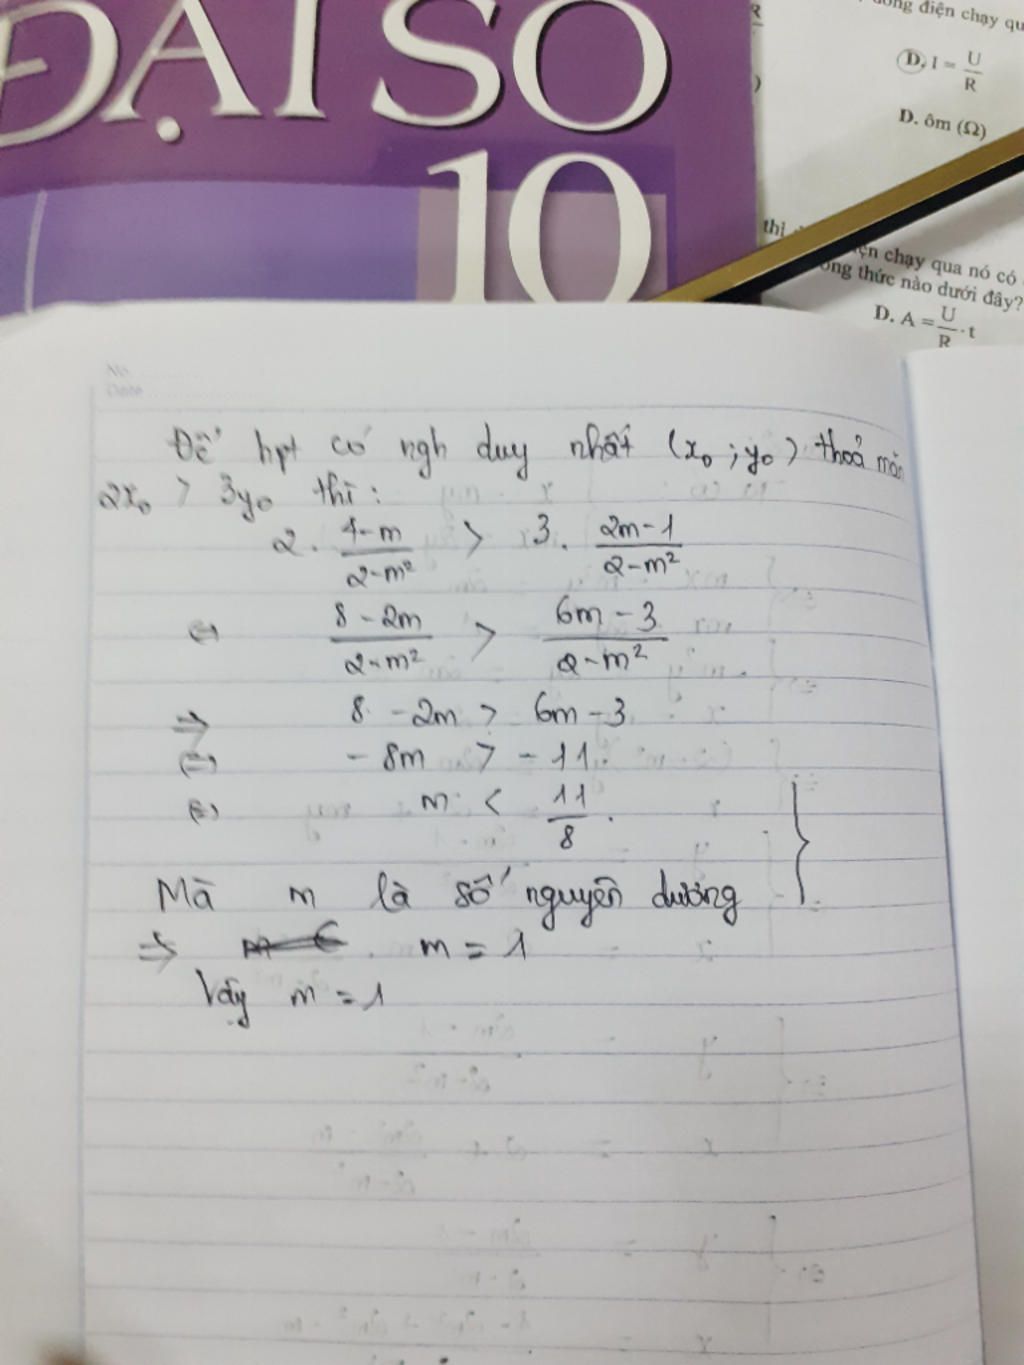 ĐẠI SỐ
10
dòng điện chạy qu
D. I = U/R
D. ôm (Ω)
thì
điện chạy qua nó có
công thức nào dưới đây?
D. A = U/R . t
No
Date
Để hpt có ngh duy nhất (x₀ ; y₀) thoả mãn
2x₀ > 3y₀ thì :
2 . (4-m)/(2-m²) > 3 . (2m-1)/(2-m²)
⇔ (8-2m)/(2-m²) > (6m-3)/(2-m²)
⇒ 8 - 2m > 6m - 3
⇔ - 8m > - 11
⇔ m < 11/8 .
Mà m là số nguyên dương
⇒ m = 1
Vậy m = 1